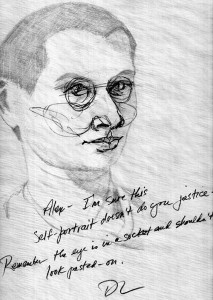 Alex - I'm sure this
self-portrait doesn't do you justice.
Remember the eye is in a socket and shouldn't
look pasted-on.
DL